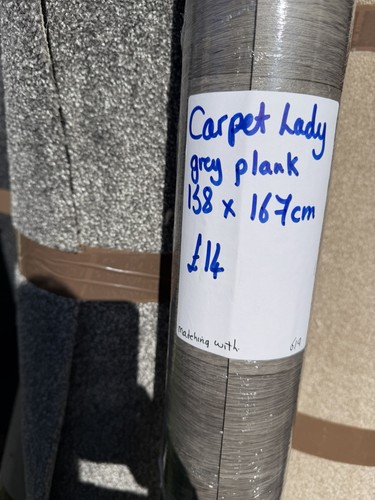 Carpet Lady
grey plank
138 x 167cm
£14
matching with